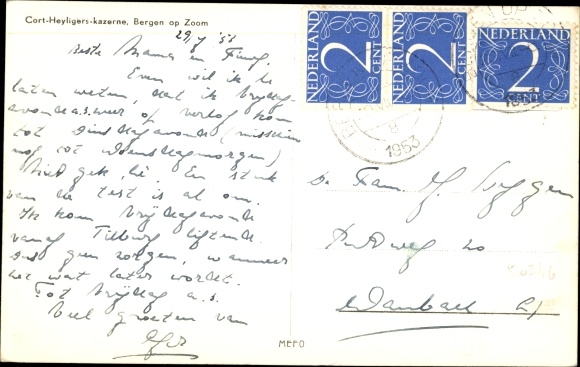 Cort-Heyligers-kazerne, Bergen op Zoom
29/7 '53
Beste Mama en
Even wil ik te
laten weten, dat ik vrijdag-
avond a.s. weer of verlof kom
tot dinsdagavond (misschien
nog tot woensdagmorgen)
Niet gek, hè. En stuk
van de test is al om.
Ik kom vrijdagavond
vanaf Tilburg liftend.
Dus geen zorgen, wanneer
het wat later wordt.
Tot vrijdag a.s.
Veel groeten van
NEDERLAND
2
CENT
NEDERLAND
2
CENT
NEDERLAND
2
CENT
1953
De Fam.
weg 20
MEFO